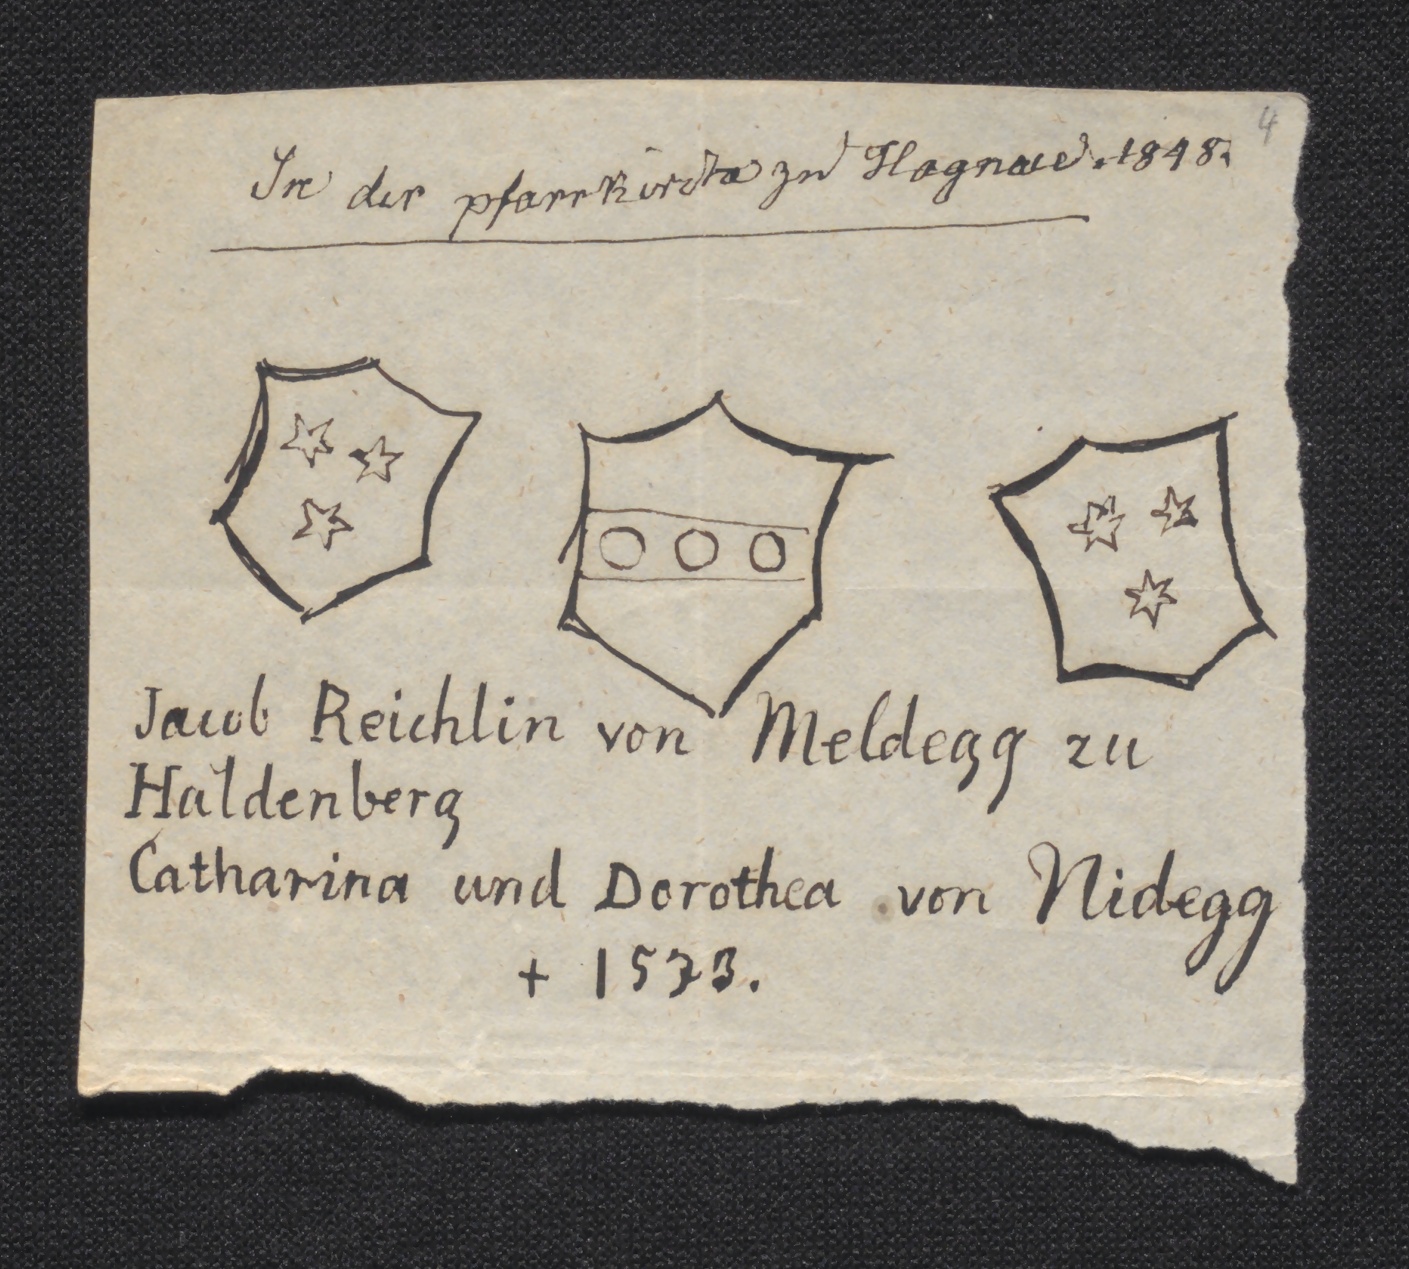 4
In der pfarrkirche zu Hagnau. 1848.
Jacob Reichlin von Meldegg zu
Haldenberg
Catharina und Dorothea von Nidegg
+ 1573.